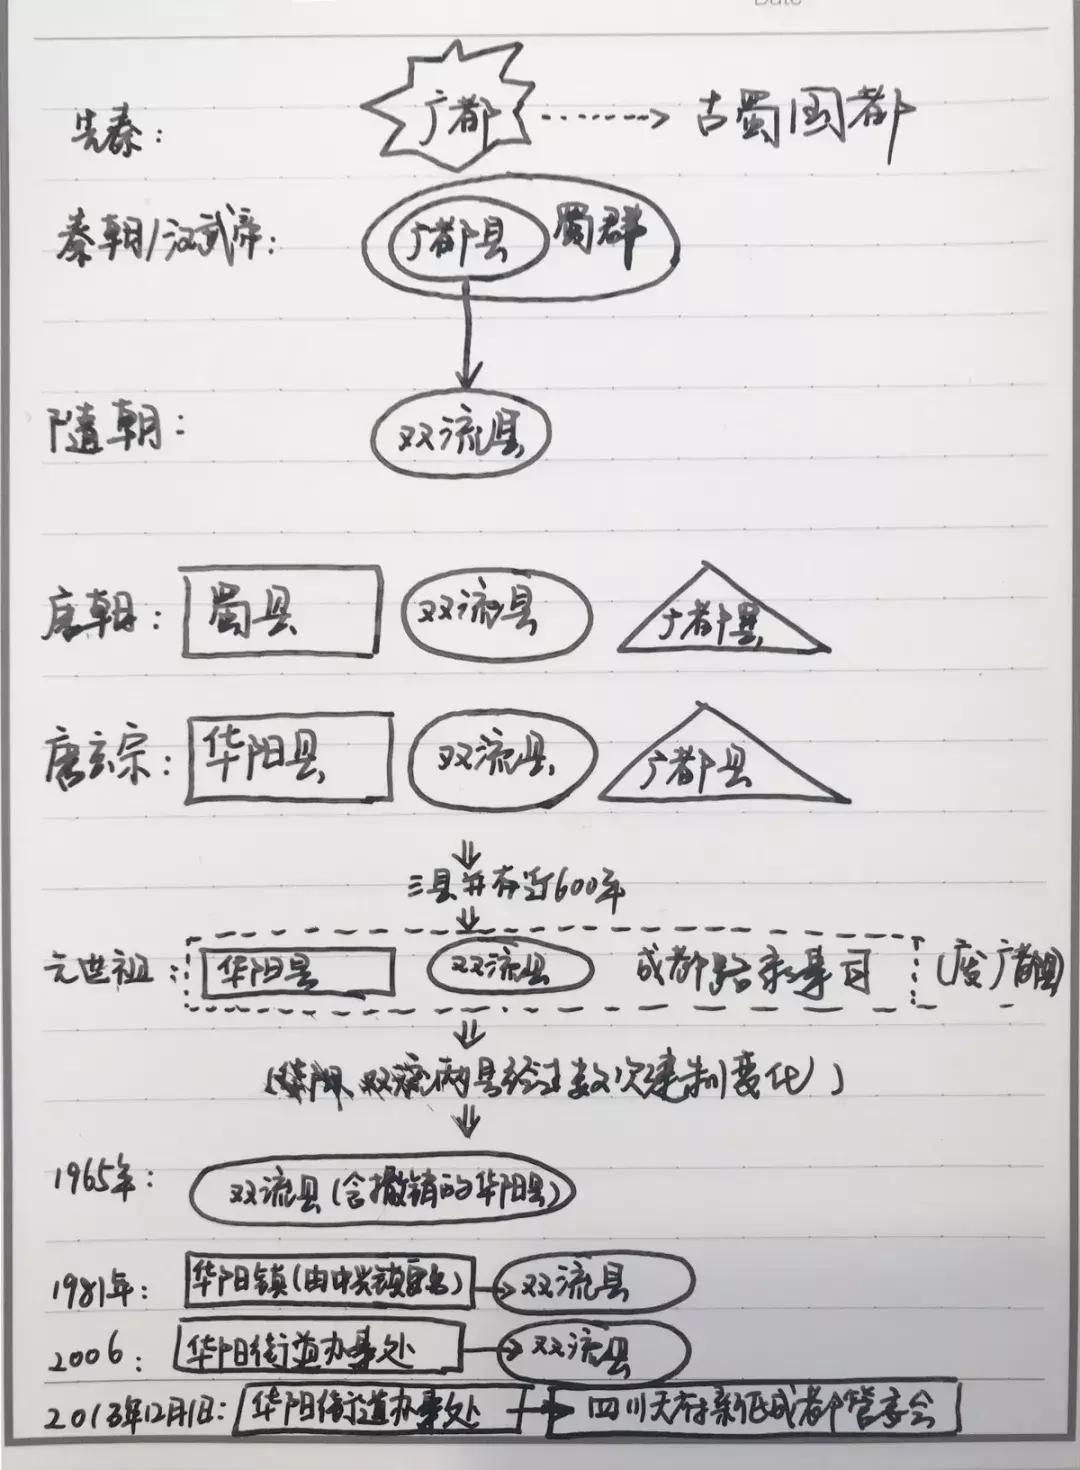 Date
先秦: 广都 古蜀国都
秦朝/汉武帝: 广都县 蜀群
隋朝: 双流县
唐朝: 蜀县 双流县 广都县
唐玄宗: 华阳县 双流县 广都县
三县并存近600年
元世祖: 华阳县 双流县 成都路录事司 (废广都县)
(华阳、双流两县经过数次建制变化)
1965年: 双流县(含撤销的华阳县)
1981年: 华阳镇(由中兴镇更名) 双流县
2006: 华阳街道办事处 双流县
2013年12月1日: 华阳街道办事处 四川天府新区成都管委会